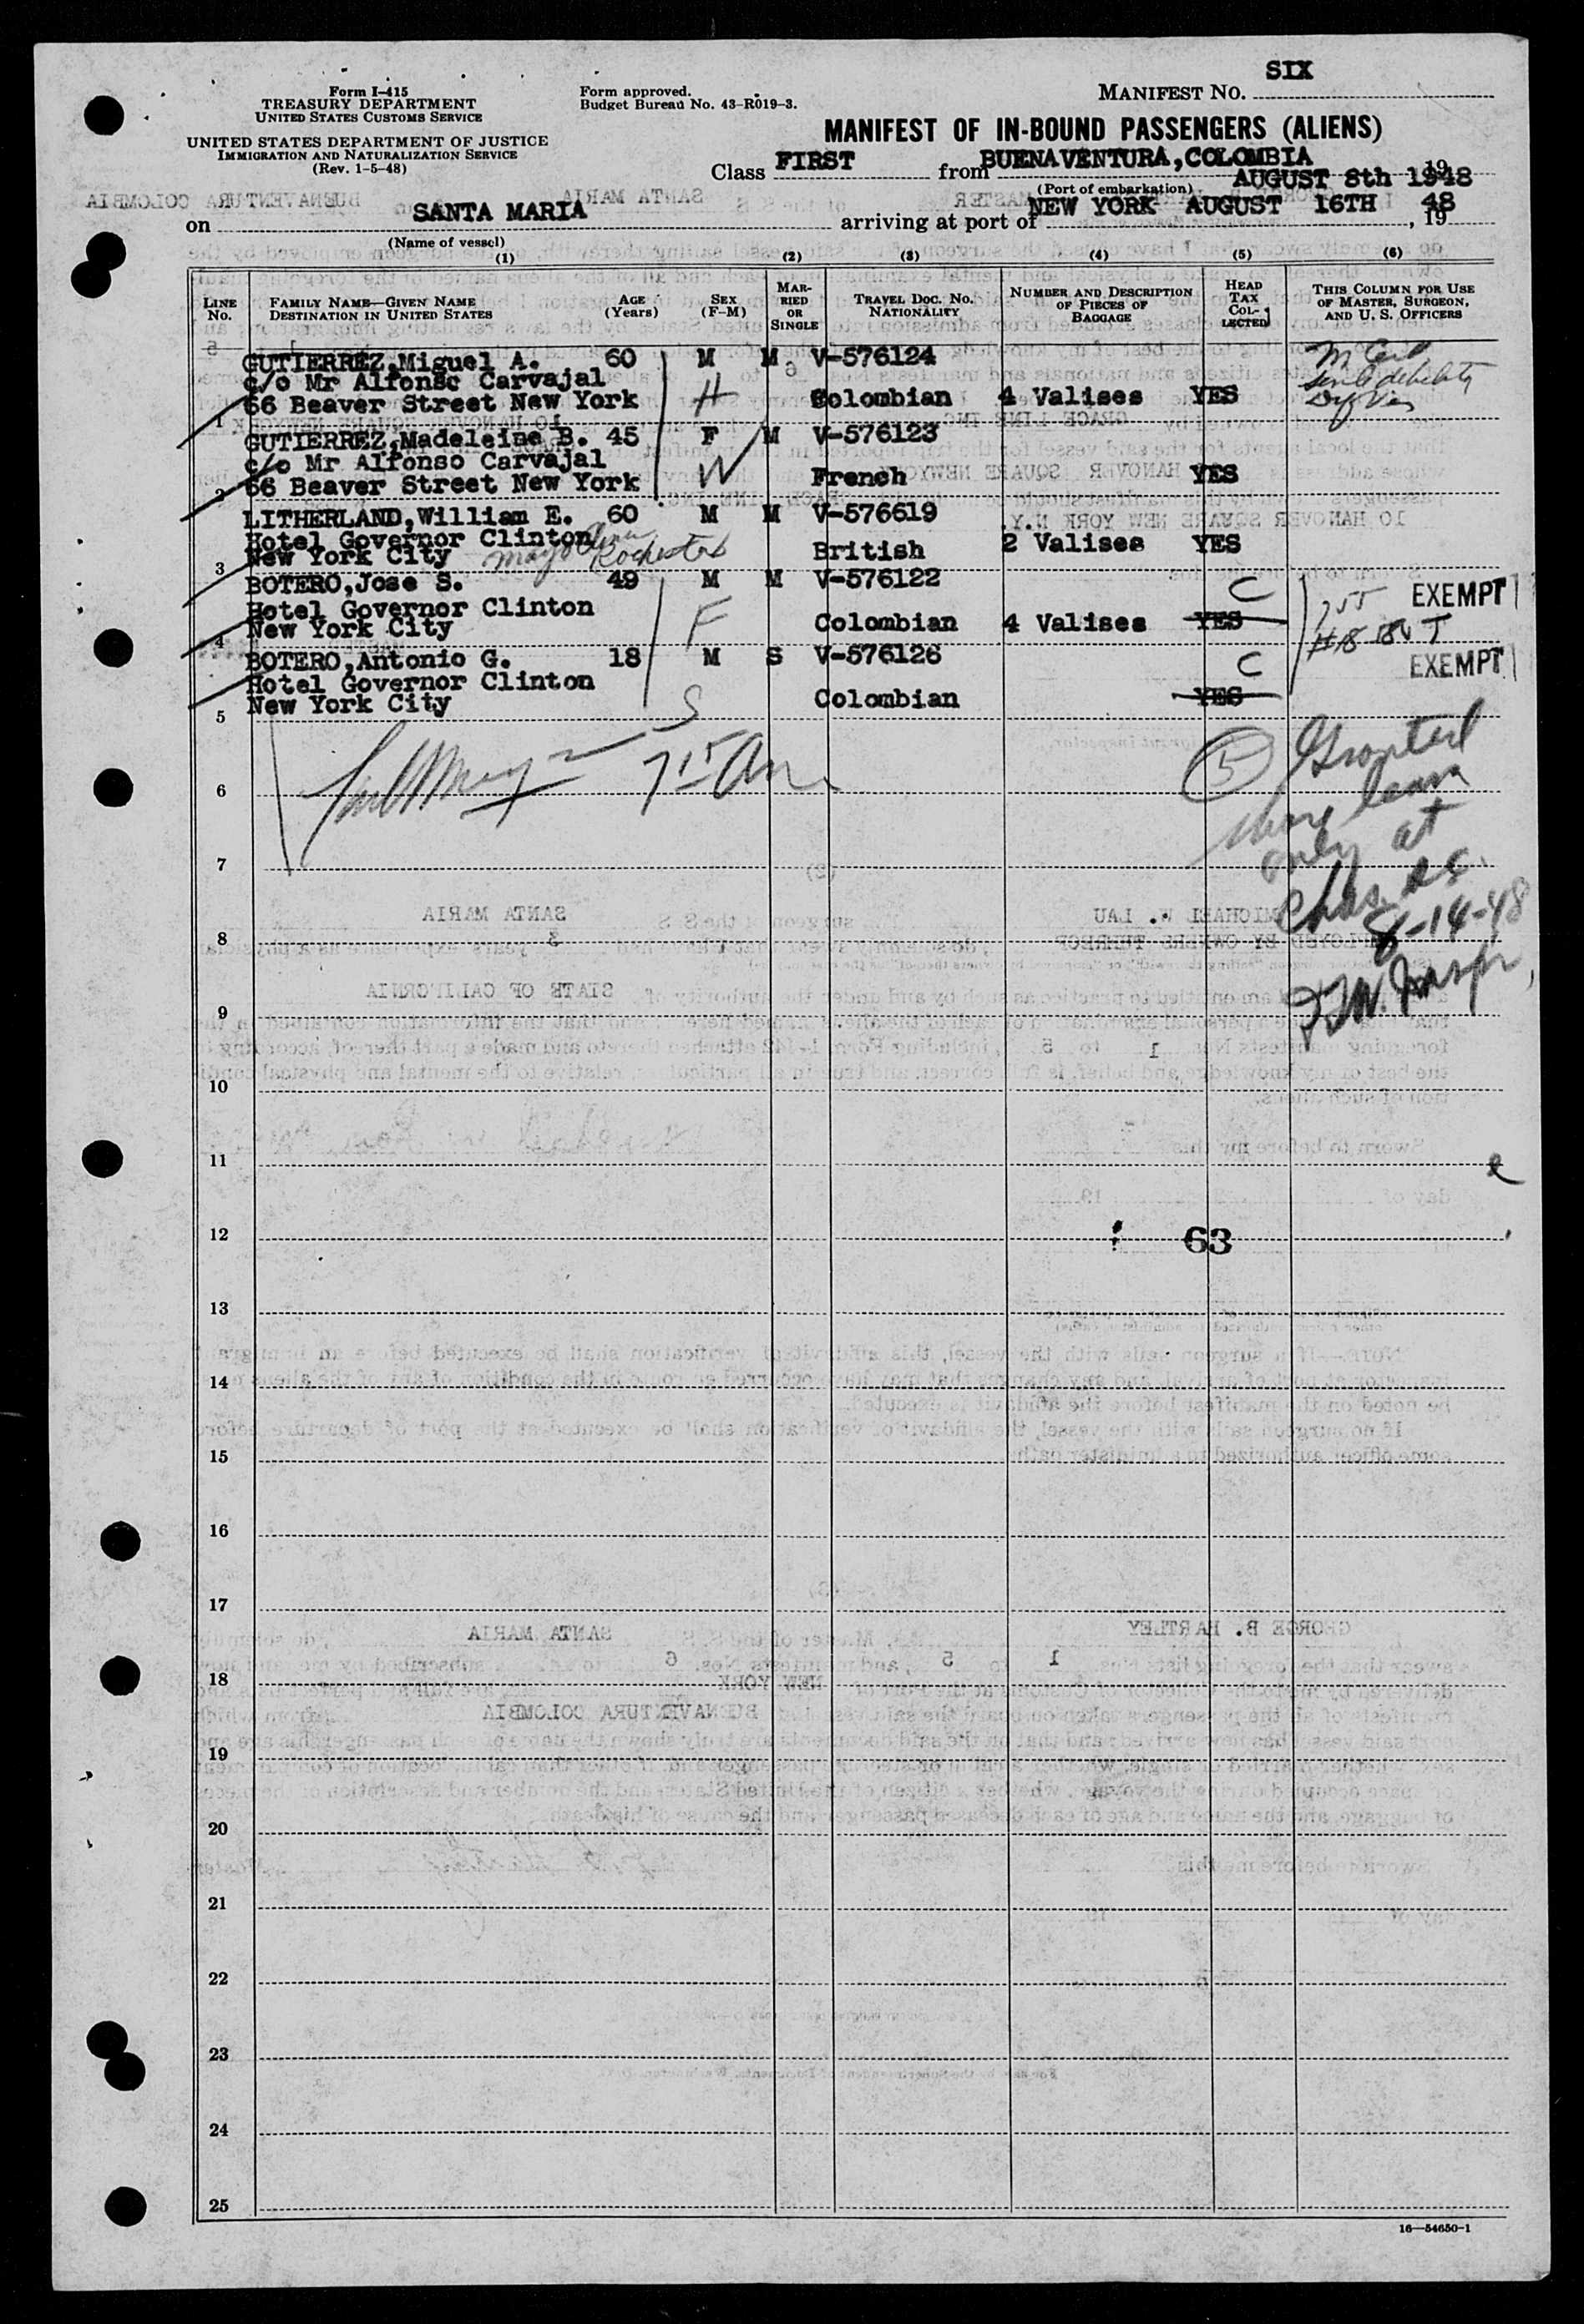 SIX
Form I-415
TREASURY DEPARTMENT
UNITED STATES CUSTOMS SERVICE
Form approved.
Budget Bureau No. 43-R019-3.
MANIFEST NO.
UNITED STATES DEPARTMENT OF JUSTICE
IMMIGRATION AND NATURALIZATION SERVICE
(Rev. 1-5-48)
MANIFEST OF IN-BOUND PASSENGERS (ALIENS)
Class FIRST from BUENAVENTURA, COLOMBIA
(Port of embarkation) AUGUST 8th 1948 19
on SANTA MARIA arriving at port of NEW YORK AUGUST 16TH, 19 48
(Name of vessel)
(1) (2) (3) (4) (5) (6)
LINE No. FAMILY NAME—GIVEN NAME DESTINATION IN UNITED STATES AGE (Years) SEX (F-M) MARRIED OR SINGLE TRAVEL DOC. NO. NATIONALITY NUMBER AND DESCRIPTION OF PIECES OF BAGGAGE HEAD TAX COLLECTED THIS COLUMN FOR USE OF MASTER, SURGEON, AND U. S. OFFICERS
GUTIERREZ, Miguel A. 60 M M V-576124 M Cert
c/o Mr Alfonso Carvajal senile debility
1 66 Beaver Street New York H Colombian 4 Valises YES
GUTIERREZ, Madeleine B. 45 F M V-576123
c/o Mr Alfonso Carvajal
2 66 Beaver Street New York W French YES
LITHERLAND, William E. 60 M M V-576619
Hotel Governor Clinton Mayo Clinic
3 New York City Rochester British 2 Valises YES
BOTERO, Jose S. 49 M M V-576122 C EXEMPT
Hotel Governor Clinton
4 New York City F Colombian 4 Valises YES
BOTERO, Antonio G. 18 M S V-576126 C EXEMPT
Hotel Governor Clinton
5 New York City S Colombian YES
5 Granted
6
shore leave
only at
7
8-14-48
8
9
10
11
12 63
13
14
15
16
17
18
19
20
21
22
23
24
25
16—54650-1